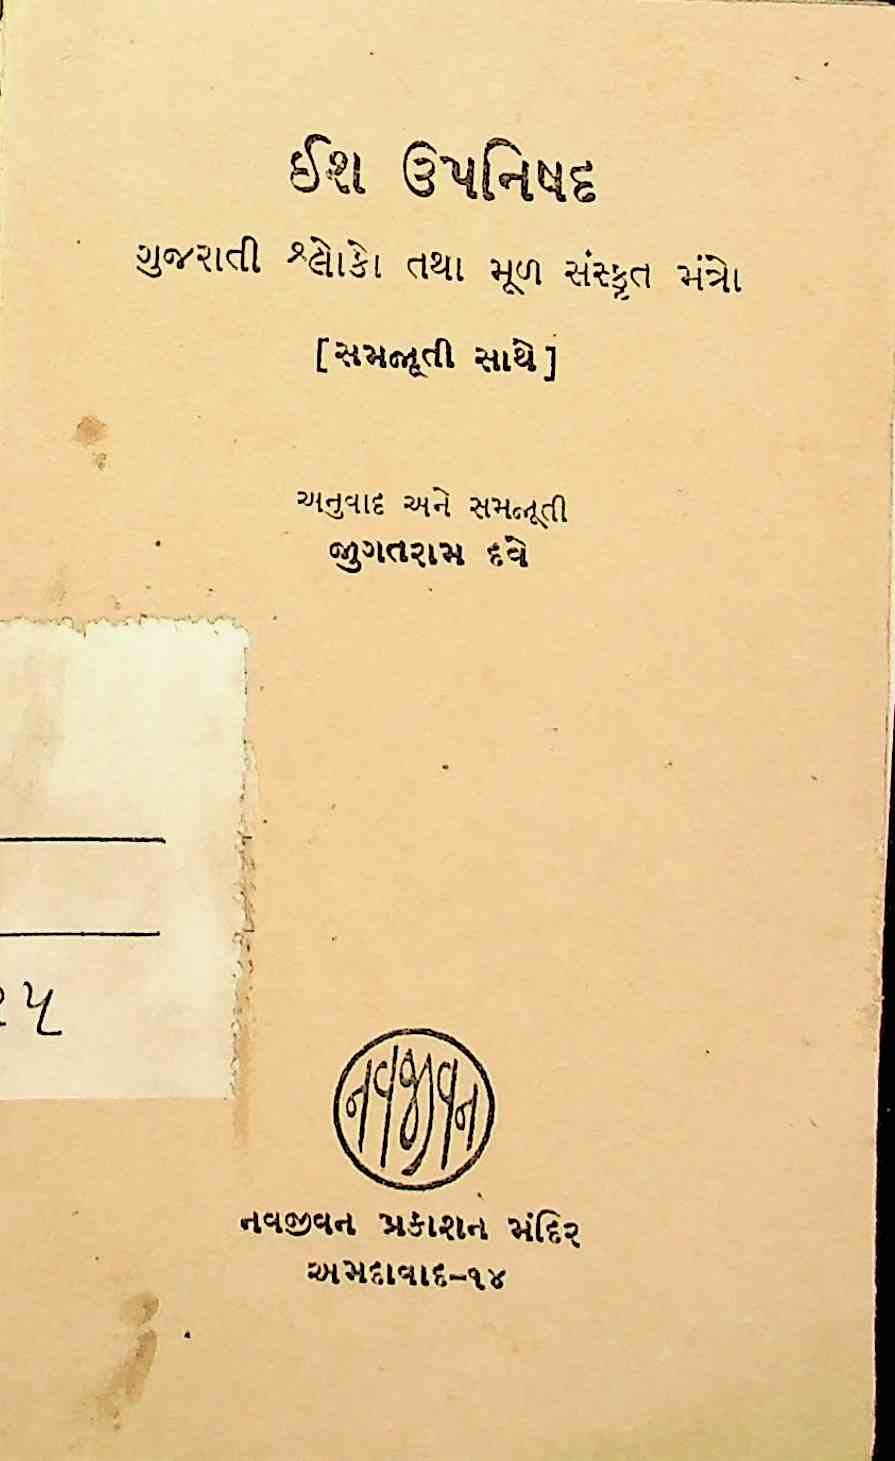 ઈશ ઉપનિષદ
ગુજરાતી શ્લોકો તથા મૂળ સંસ્કૃત મંત્રો
[સમજૂતી સાથે]
અનુવાદ અને સમજૂતી
જુગતરામ દવે
૨૫
નવજીવન
નવજીવન પ્રકાશન મંદિર
અમદાવાદ-૧૪